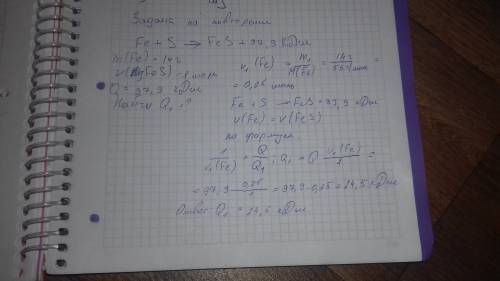 Задача на повторение
Fe + S → FeS + 97,9 кДж
m(Fe) = 14г
ν(FeS) = 1 моль
Q = 97,9 кДж
Найти Q₁ - ?
ν₁(Fe) = m₁/M(Fe) = 14г/56г/моль =
= 0,25 моль
Fe + S → FeS + 97,9 кДж
ν(Fe) = ν(FeS)
по формуле
1/ν₁(Fe) = Q/Q₁ ; Q₁ = Q · ν₁(Fe)/1 =
= 97,9 · 0,25/1 = 97,9 · 0,25 = 24,5 кДж
Ответ Q₁ = 24,5 кДж